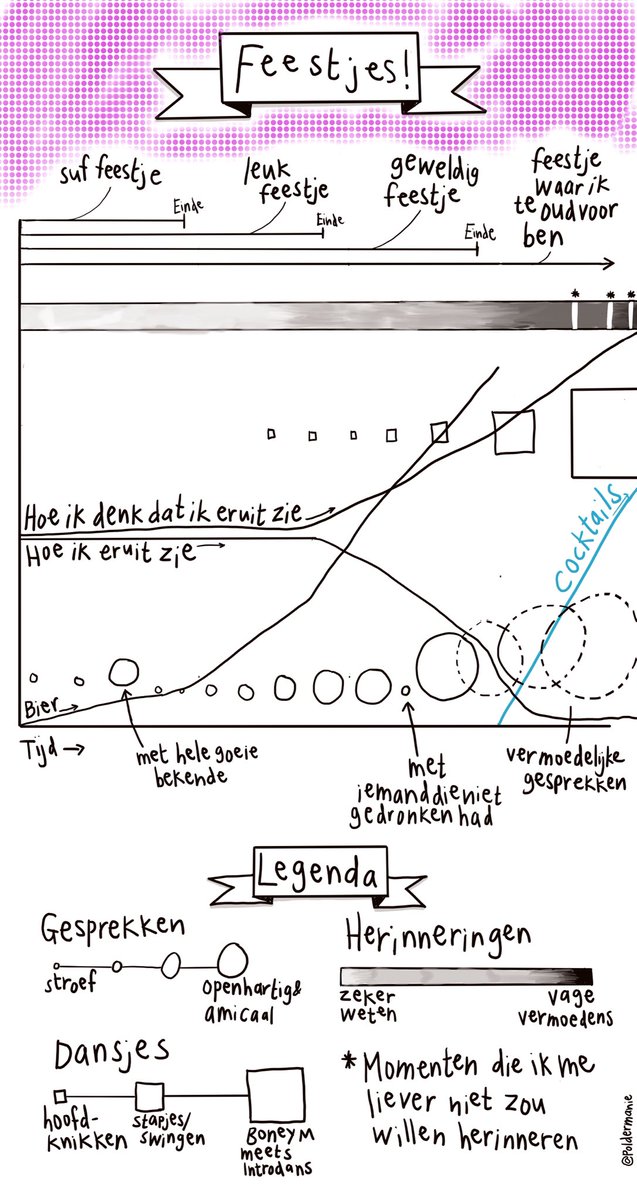 Feestjes!
suf feestje
leuk
feestje
geweldig
feestje
feestje
waar ik
te oud voor
ben
Einde
Einde
Einde
* * *
Hoe ik denk dat ik eruit zie
Hoe ik eruit zie
Cocktails
Bier
Tijd
met hele goeie
bekende
met
iemand die niet
gedronken had
vermoedelijke
gesprekken
Legenda
Gesprekken
stroef
openhartig &
amicaal
Herinneringen
zeker
weten
vage
vermoedens
Dansjes
hoofd-
knikken
stapjes/
swingen
Boney M
meets
Introdans
* Momenten die ik me
liever niet zou
willen herinneren
@Poldermanie